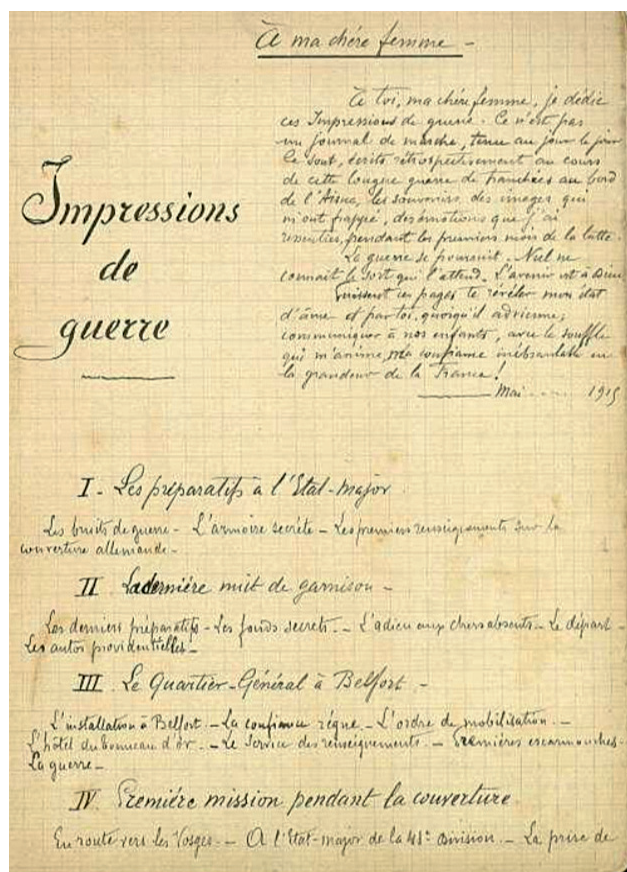 À ma chère femme -
À toi, ma chère femme, je dédie
ces Impressions de guerre. Ce n'est pas
un journal de marche, tenu au jour le jour
Ce sont, écrits rétrospectivement au cours
de cette longue guerre de tranchées au bord
de l'Aisne, les souvenirs des images qui
m'ont frappé, des émotions que j'ai
ressenties, pendant les premiers mois de la lutte.
La guerre se poursuit. Nul ne
connait le sort qui l'attend. L'avenir est à Dieu
Puissent ces pages te révéler mon état
d'âme et par toi, quoiqu'il advienne,
communiquer à nos enfants, avec le souffle
qui m'anime, ma confiance inébranlable en
la grandeur de la France!
Mai 1915
Impressions
de
guerre
I - Les préparatifs à l'Etat-major
Les bruits de guerre - L'armoire secrète - Les premiers renseignements sur la
couverture allemande -
II La dernière nuit de garnison -
Les derniers préparatifs - Les fonds secrets. - L'adieu aux chers absents - Le départ -
Les autos providentielles -
III. Le Quartier-Général à Belfort. -
L'installation à Belfort. - La confiance règne. - L'ordre de mobilisation. -
L'hôtel du tonneau d'or. - Le Service des renseignements. - Premières escarmouches -
La guerre -
IV. Première mission pendant la couverture
En route vers les Vosges. - A l'Etat-major de la 41e Division. - La prise de